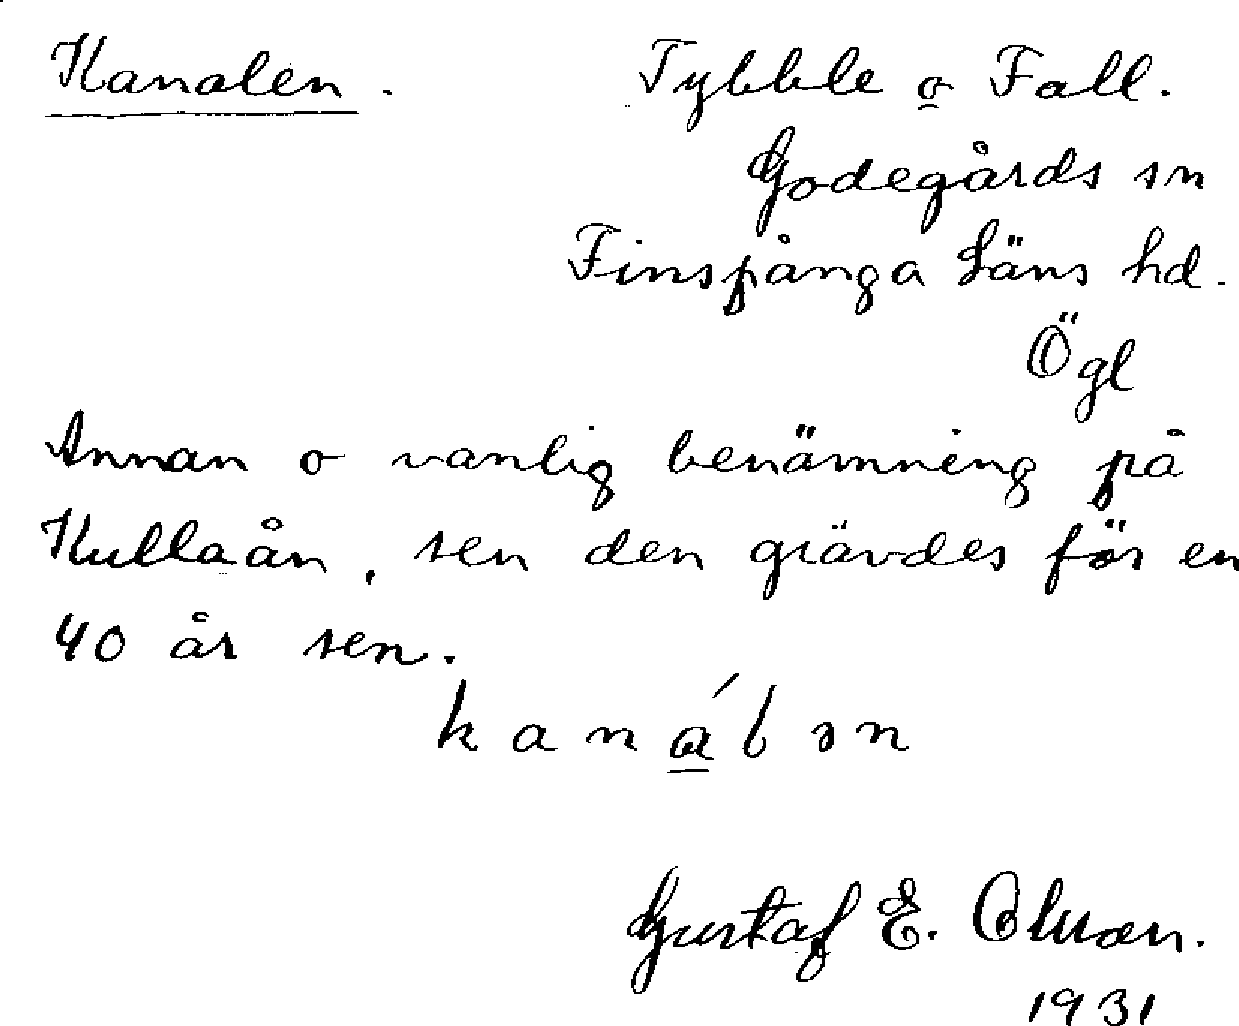 Kanalen. Tybble o Fall.
Godegårds sn
Finspånga Läns hd.
Ögl
Annan o vanlig benämning på
Kullaån, sen den grävdes för en
40 år sen.
kanálən
Gustaf E.
1931